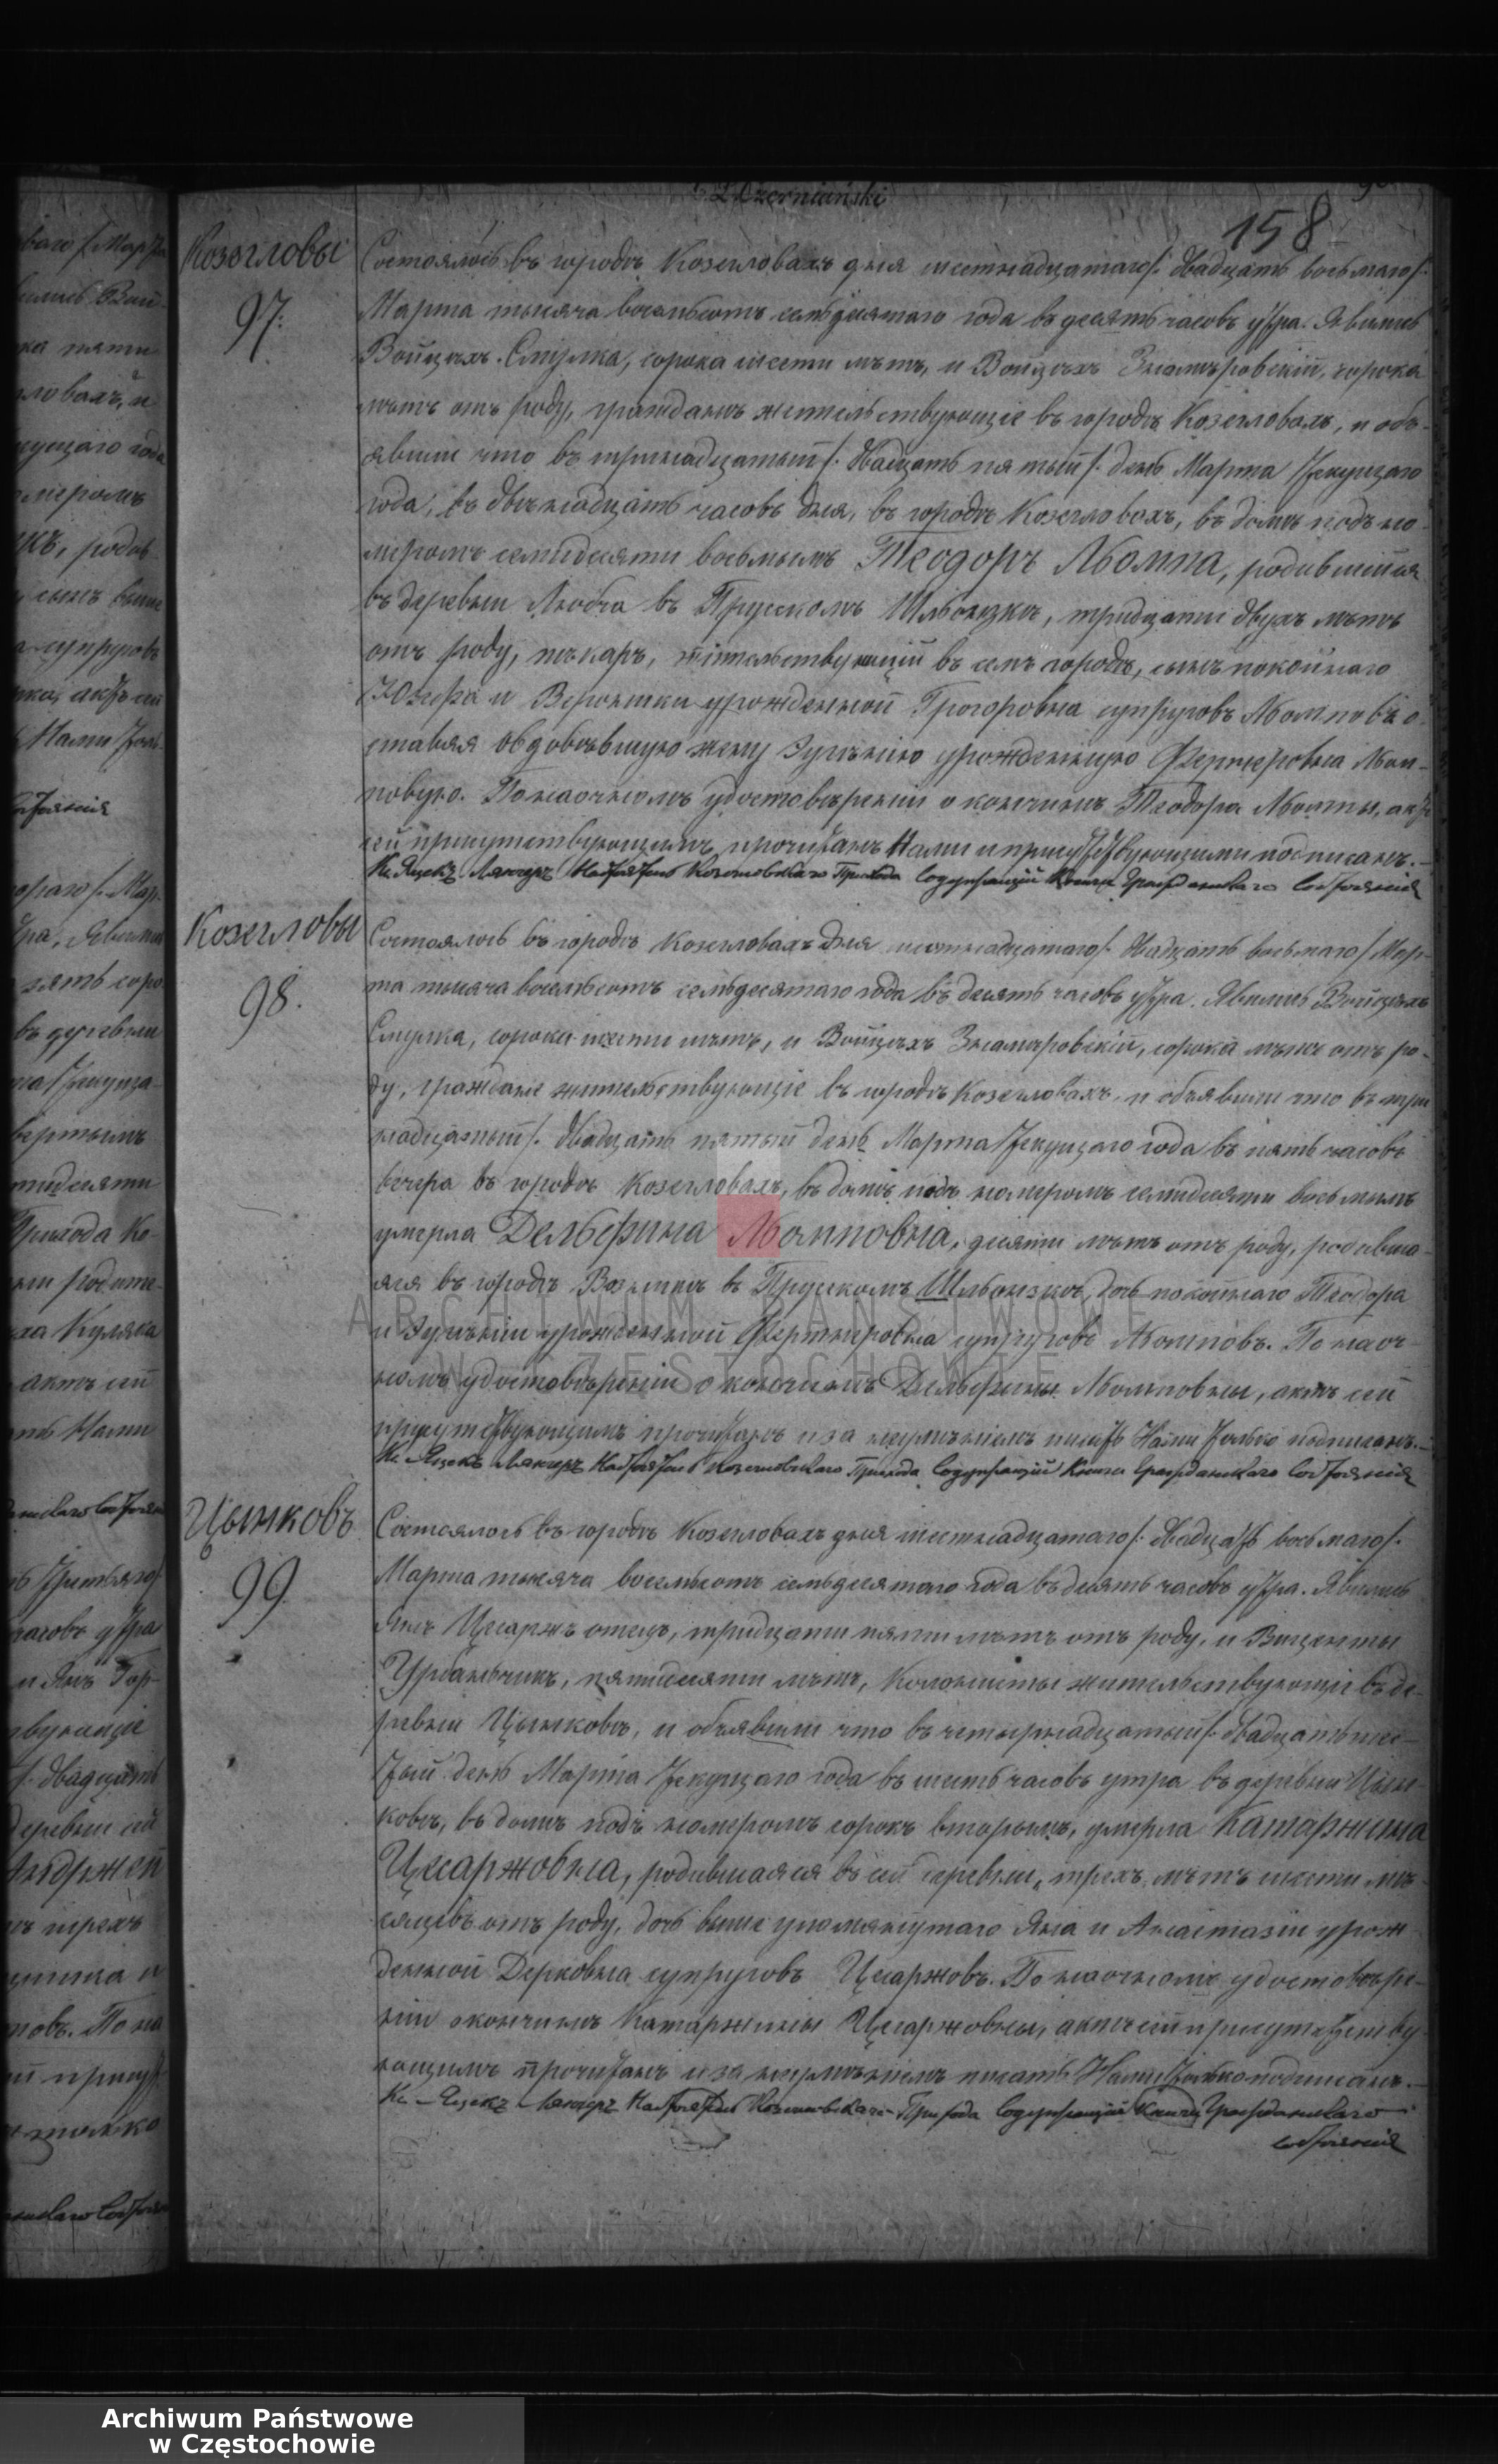 L Czerniański
158
Козегловы
97.
Состоялось въ городѣ Козегловахъ дня шестнадцатаго /: двадцать восьмаго /:
Марта тысяча восемьсотъ семьдесятаго года въ десять часовъ утра. Явились
Войцѣхъ Смулка, сорока шести лѣтъ, и Войцѣхъ Знамѣровскій, сорока
лѣтъ отъ роду, граждане жительствующіе въ городѣ Козегловахъ, и объ-
явили что въ тринадцатый /: двадцать пятый /: день Марта текущаго
года, въ двѣнадцать часовъ дня, въ городѣ Козегловахъ, въ домѣ подъ но-
меромъ семидесяти восьмымъ Теодоръ, родившійся
въ деревни Любча въ Прусскомъ Шльонзкѣ, тридцати двухъ лѣтъ
отъ роду, жительствующій въ семъ городѣ, сынъ покойнаго
Юзефа и Вероники урожденной супруговъ о-
ставяя овдовѣвшую жену урожденную
По наочномъ удостовѣреніи о кончинѣ Теодора актъ
сей присутствующимъ прочитанъ Нами и присутствующими подписанъ.
Кс Яцекъ Настоятель Козегловскаго Прихода Содержащій Книги Гражданскаго Состоянія
Козегловы
98.
Состоялось въ городѣ Козегловахъ дня шестнадцатаго /: двадцать восьмаго / Мар-
та тысяча восемьсотъ семьдесятаго года въ десять часовъ утра. Явились Войцѣхъ
Смулка, сорока шести лѣтъ, и Войцѣхъ Знамѣровскій, сорока лѣтъ отъ ро-
ду, граждане жительствующіе въ городѣ Козегловахъ, и объявили что въ три
надцатый /: двадцать пятый день Марта текущаго года въ пять часовъ
вечера въ городѣ Козегловахъ, въ домѣ подъ номеромъ семидесяти восьмымъ
умерла Дельфина, десяти лѣтъ отъ роду, родивша-
яся въ городѣ въ Прусскомъ Шльонзкѣ, дочь покойнаго Теодора
и урожденной супруговъ По наоч-
номъ удостовѣреніи о кончинѣ Дельфины актъ сей
присутствующимъ прочитанъ и за неумѣніемъ писать Нами только подписанъ.
Кс Яцекъ Настоятель Козегловскаго Прихода Содержащій Книги Гражданскаго Состоянія
Цынковъ
99.
Состоялось въ городѣ Козегловахъ дня шестнадцатаго /: двадцать восьмаго /:
Марта тысяча восемьсотъ семьдесятаго года въ десять часовъ утра. Явились
Янъ Цесаржъ отецъ, тридцати пяти лѣтъ отъ роду, и Виценты
Урбаньчикъ, пятидесяти лѣтъ, Колонисты жительствующіе въ де-
ревни Цынковѣ, и объявили что въ четырнадцатый /: двадцать шес-
тый день Марта текущаго года въ шесть часовъ утра въ деревни Цын-
ковѣ, въ домѣ подъ номеромъ сорокъ вторымъ, умерла Катаржина
Цесаржовна, родившаяся въ сей деревни, трехъ лѣтъ шести мѣ-
сяцевъ отъ роду, дочь выше упомянутаго Яна и Анастазіи урож-
денной Дерковна супруговъ Цесаржовъ. По наочномъ удостовѣре-
ніи о кончинѣ Катаржины Цесаржовны, актъ сей присутству-
ющимъ прочитанъ и за неумѣніемъ писать Нами только подписанъ.
Кс Яцекъ Настоятель Козегловскаго Прихода Содержащій Книги Гражданскаго
Состоянія
ARCHIWUM PAŃSTWOWE
W CZĘSTOCHOWIE
Archiwum Państwowe
w Częstochowie